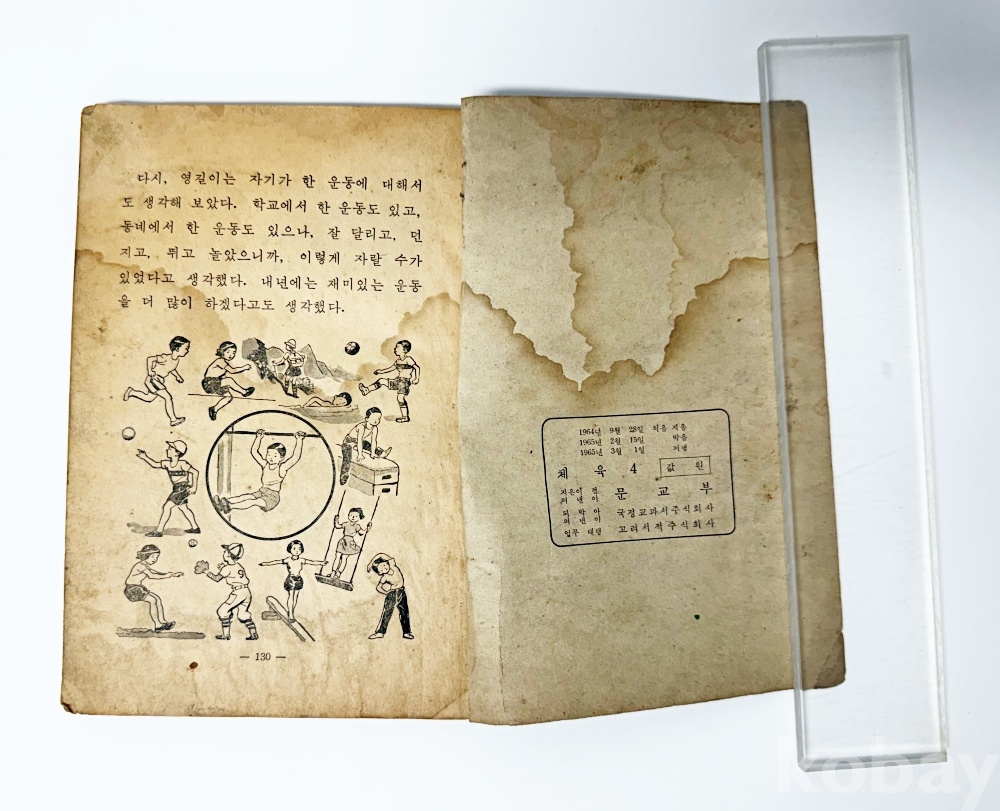 다시, 영길이는 자기가 한 운동에 대해서
도 생각해 보았다. 학교에서 한 운동도 있고,
동네에서 한 운동도 있으나, 잘 달리고, 던
지고, 뛰고 놀았으니까, 이렇게 자랄 수가
있었다고 생각했다. 내년에는 재미있는 운동
을 더 많이 하겠다고도 생각했다.
— 130 —
1964년 9월 28일 처음 지음
1965년 2월 15일 박음
1965년 3월 1일 펴냄
체 육 4 값 원
지은이 겸
펴 낸 이 문 교 부
되 박 아
펴 낸 이 국정교과서주식회사
업무 대행 고려서적주식회사
kobay